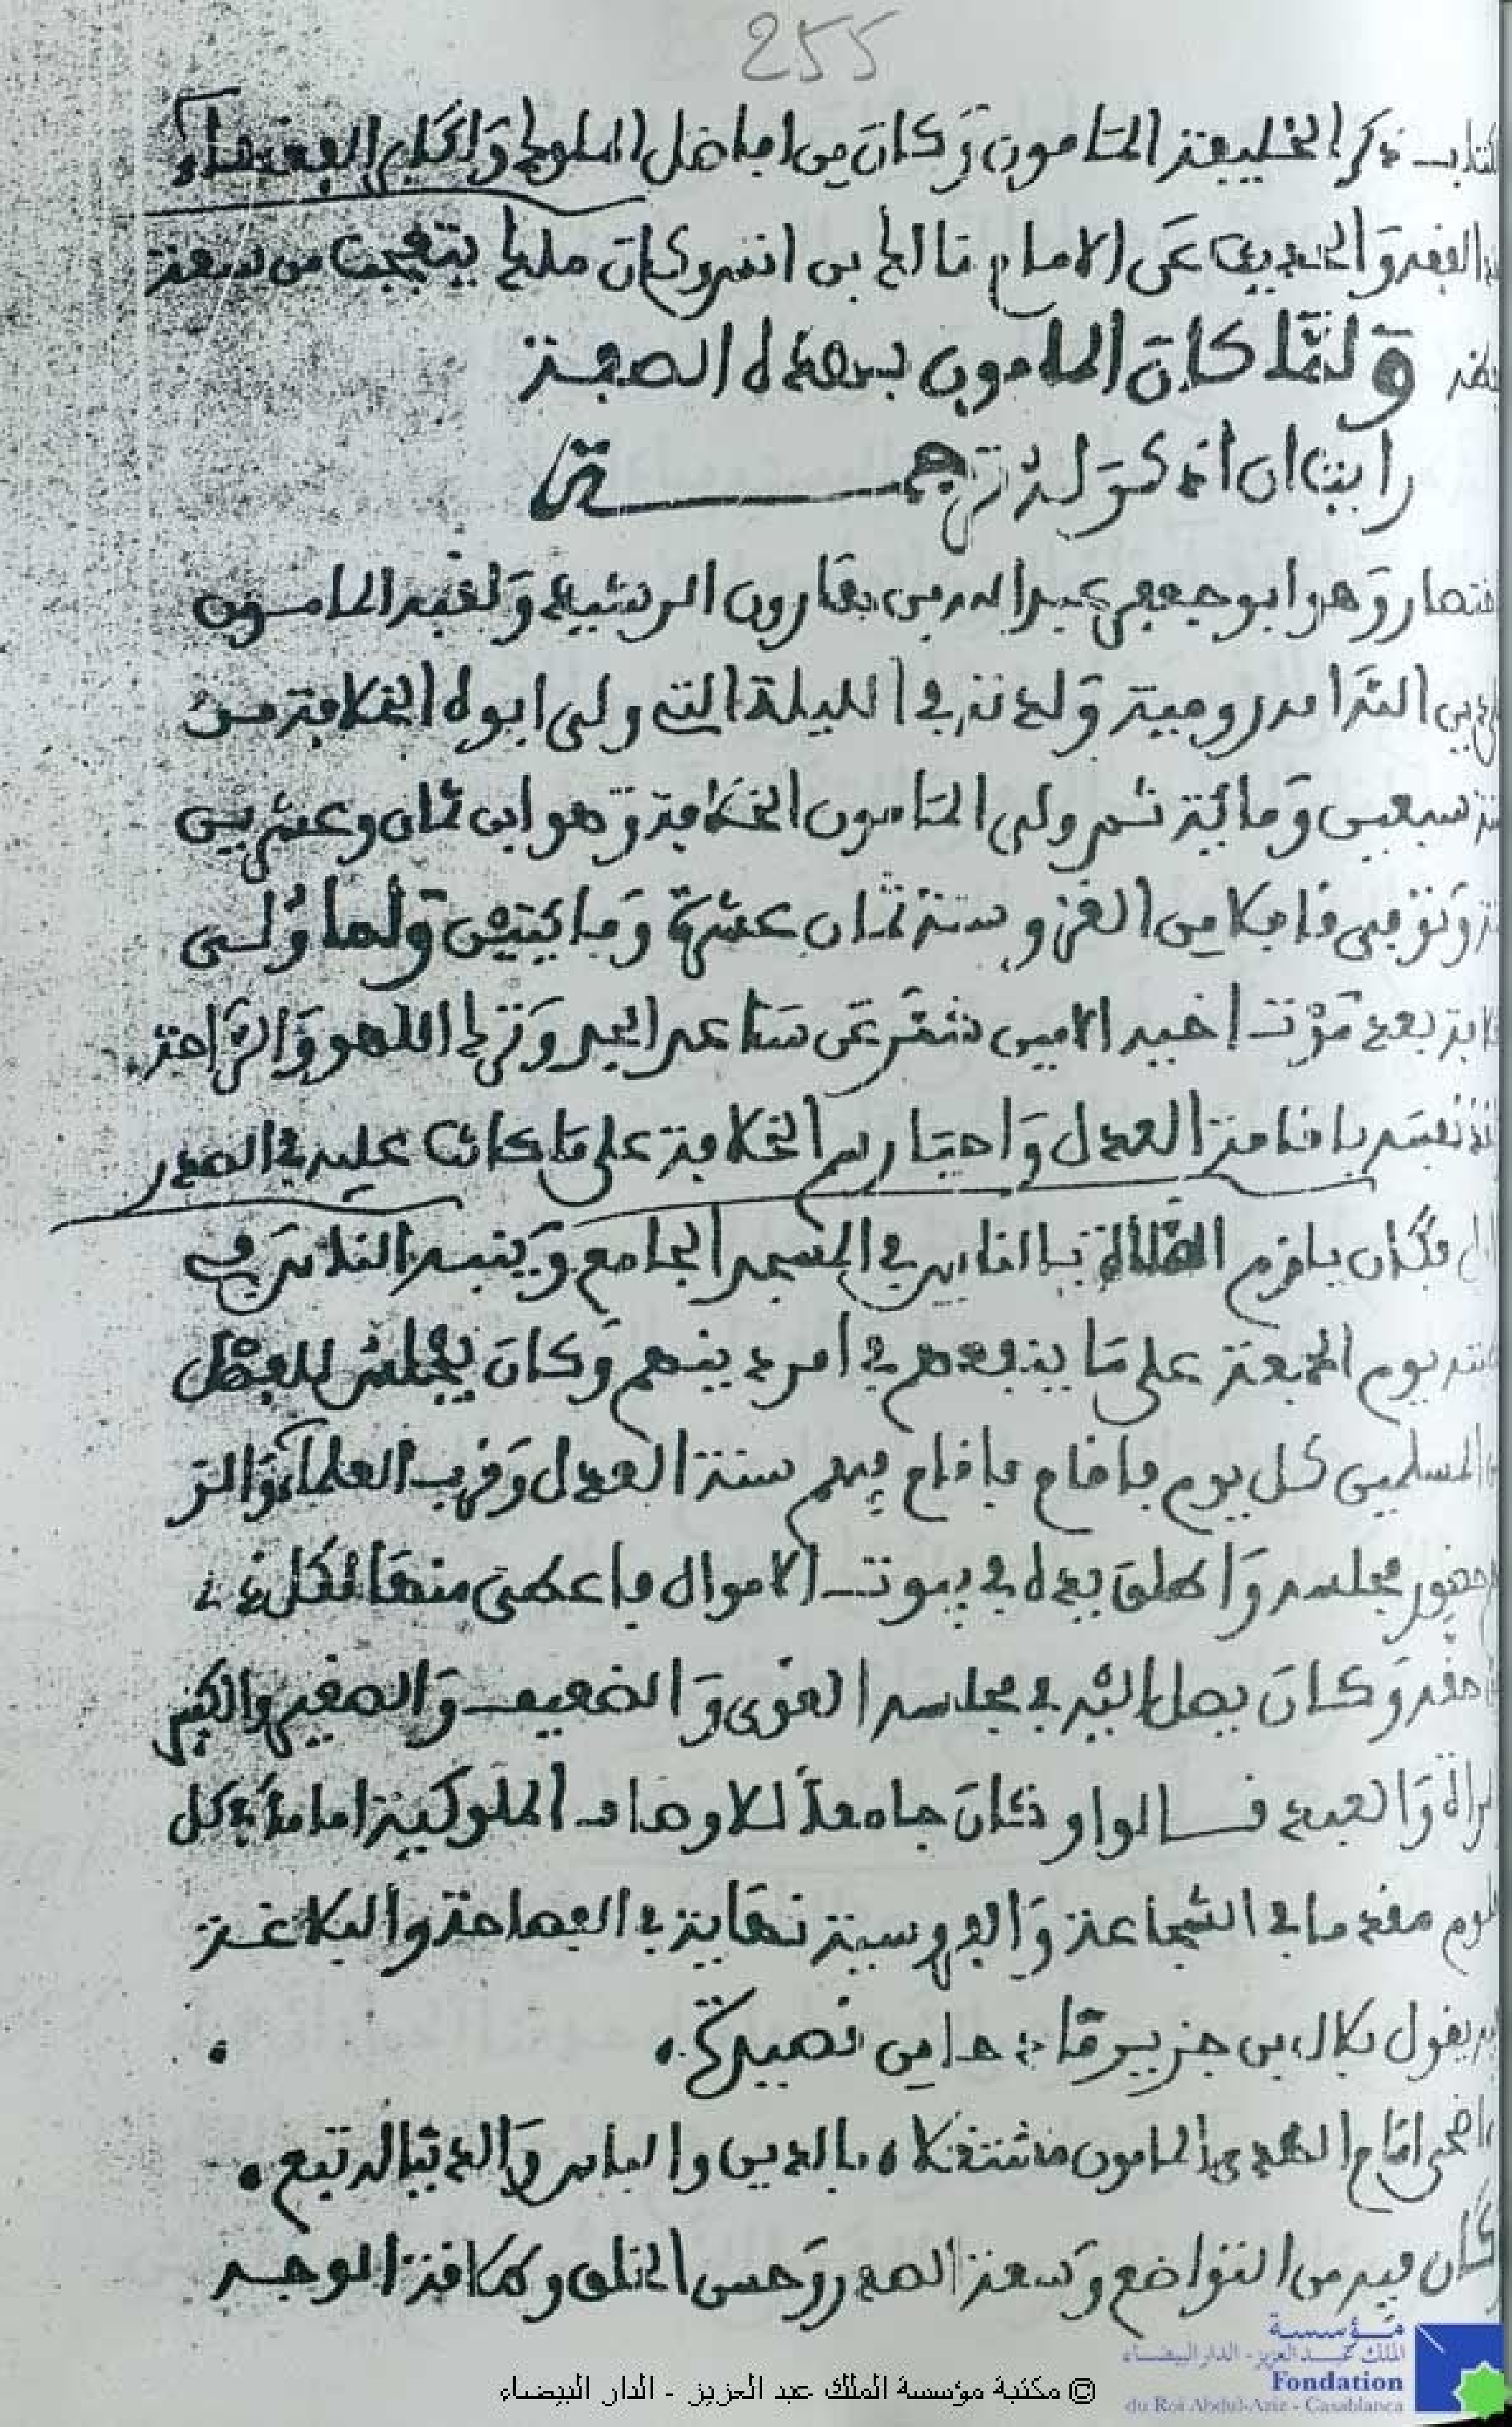 255
كتاب ذكر الخليفة المامون وكان من افاضل الملوك واكابر الفقهاء
الفقه والحديث عن الامام مالك بن انس وكان ملك يتعجب من سعة
ولما كان المامون بهذه الصفة
رايت ان اذكر له ترجمة
وهو ابو جعفر عبد الله بن هارون الرشيد ولقبه المامون
امه رومية ولدته في الليلة التي ولى ابوه الخلافة من
سبعين ومائة ثم ولى المامون الخلافة وهو ابن ثمان وعشرين
وتوفى قافلا من الغزو سنة ثمان عشرة ومايتين ولما ولى
بعد موت اخيه الامين شمر عن ساعد الجد وترك اللهو والراحة
نفسه باقامة العدل واحياء رسم الخلافة على ما كانت عليه في الصدر
فكان يلزم الصلاة بالناس في المسجد الجامع وينبه الناس في
يوم الجمعة على ما ينفعهم في امر دينهم وكان يجلس للفصل
المسلمين كل يوم فاقام فاقام فيهم سنة العدل وقرب العلماء والز
حضور مجلسه واطلق يده في بيوت الاموال فاعطى منها لكل ذي
حقه وكان يصل اليه في مجلسه القوى والضعيف والصغير والكبير
والعبد قالوا وكان جامعا للاوصاف الملوكية اماما في كل
مقدما في الشجاعة والفروسية نهاية في الفصاحة والبلاغة
يقول بلال بن جرير قا حا من نصيرة
اضحى امام الهدى المامون مشتغلا بالدين والناس والدنيا له تبع
كان فيه من التواضع وسعة الصدر وحسن الخلق وطلاقة الوجه
مؤسسة
الملك عبد العزيز - الدار البيضاء
Fondation
du Roi Abdul-Aziz - Casablanca
© مكتبة مؤسسة الملك عبد العزيز - الدار البيضاء